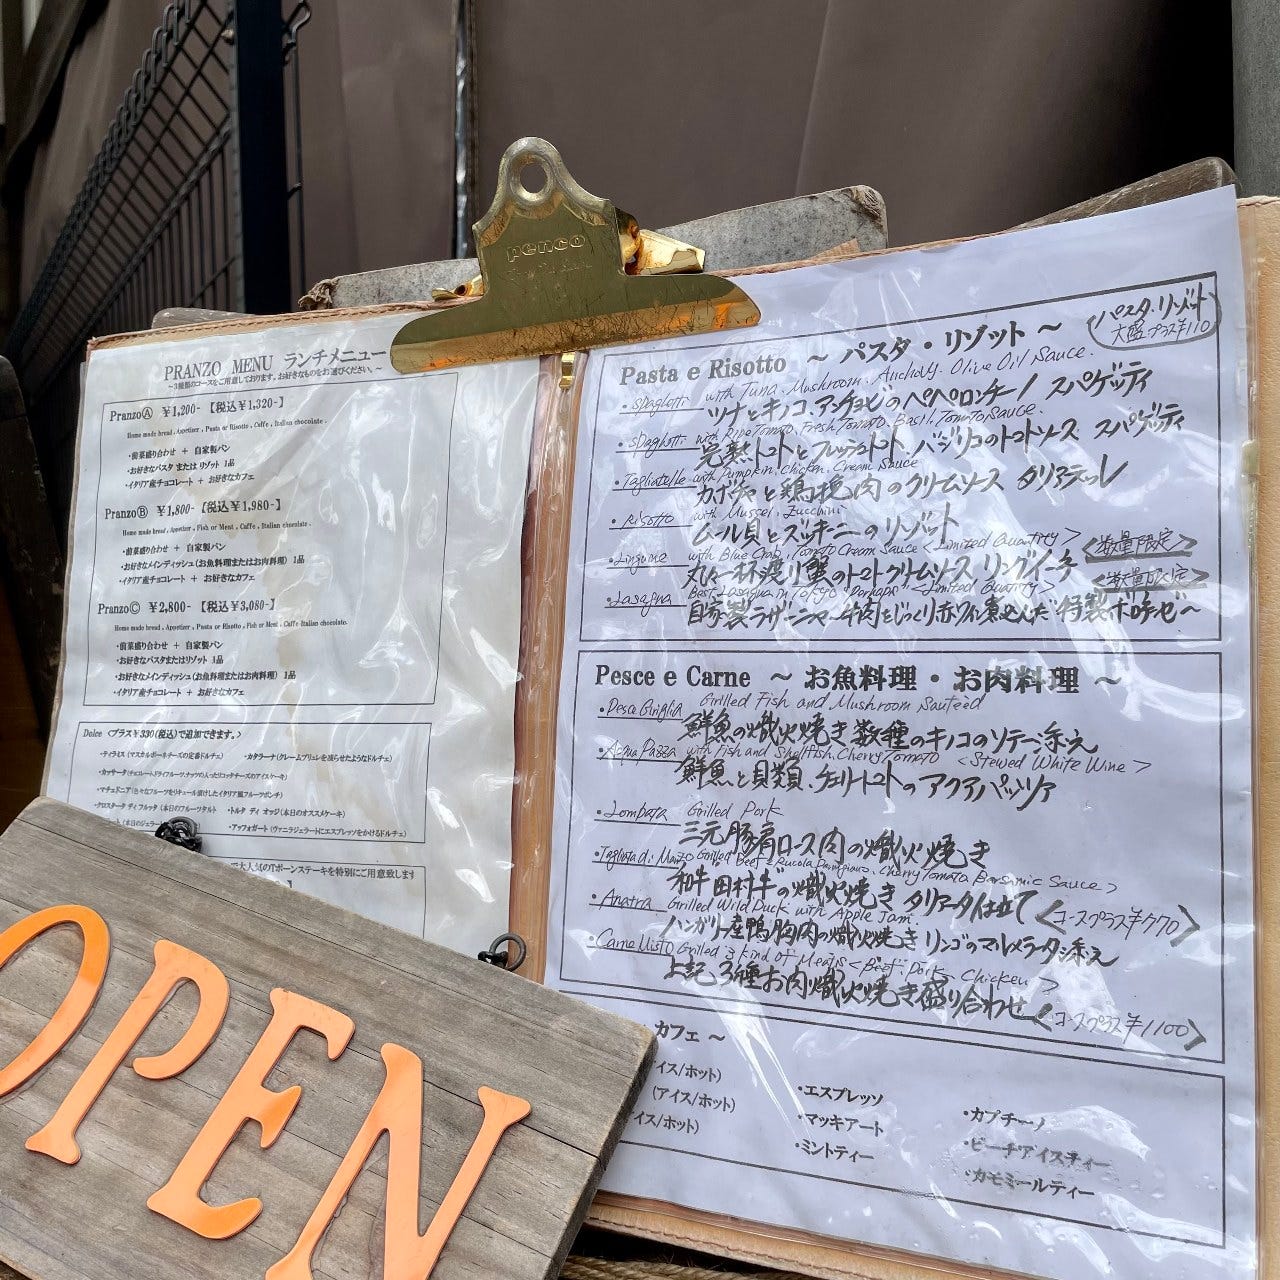 penco
PRANZO MENU ランチメニュー
～3種類のコースをご用意しております。お好きなものをお選びください。～
PranzoⒶ ￥1,200-【税込￥1,320-】
Home made bread, Appetizer, Pasta or Risotto, Caffe, Italian chocolate.
・前菜盛り合わせ ＋ 自家製パン
・お好きなパスタ または リゾット 1品
・イタリア産チョコレート ＋ お好きなカフェ
PranzoⒷ ￥1,800-【税込￥1,980-】
Home made bread, Appetizer, Fish or Meat, Caffe, Italian chocolate.
・前菜盛り合わせ ＋ 自家製パン
・お好きなメインディッシュ(お魚料理またはお肉料理) 1品
・イタリア産チョコレート ＋ お好きなカフェ
PranzoⒸ ￥2,800-【税込￥3,080-】
Home made bread, Appetizer, Pasta or Risotto, Fish or Meat, Caffe Italian chocolate.
・前菜盛り合わせ ＋ 自家製パン
・お好きなパスタまたはリゾット 1品
・お好きなメインディッシュ(お魚料理またはお肉料理) 1品
・イタリア産チョコレート ＋ お好きなカフェ
Dolce <プラス￥330(税込)で追加できます。>
・ティラミス(マスカルポーネチーズの定番ドルチェ) ・カタラーナ(クレームブリュレを凍らせたようなドルチェ)
・カッサータ(チョコレートドライフルーツ、ナッツの入ったリコッタチーズのアイスケーキ)
・マチェドニア(色々なフルーツをリキュール漬けしたイタリア風フルーツポンチ)
・クロスタータ ディ フルッタ(本日のフルーツタルト ・トルタ ディ オッジ(本日のオススメケーキ)
(本日のジェラート ・アッフォガート(ヴァニラジェラートにエスプレッソをかけるドルチェ)
大人気のTボーンステーキを特別にご用意致します
OPEN
Pasta e Risotto ～ パスタ・リゾット ～
パスタ・リゾット
大盛プラス¥110
・Spaghetti with Tuna, Mushroom, Anchovy, Olive Oil Sauce.
ツナとキノコ、アンチョビのペペロンチーノ スパゲッティ
・Spaghetti with Ripe Tomato, Fresh Tomato, Basil, Tomato Sauce.
完熟トマトとフレッシュトマト、バジリコのトマトソース スパゲッティ
・Tagliatelle with Pumpkin, Chicken, Cream Sauce
カボチャと鶏挽肉のクリームソース タリアテッレ
・Risotto with Mussel, Zucchini
ムール貝とズッキーニのリゾット
・Linguine with Blue Crab, Tomato Cream Sauce <Limited Quantity>
丸々一杯渡り蟹のトマトクリームソース リングイーネ <数量限定>
・Lasagna Best Lasagna in Tokyo "Perhaps" <Limited Quantity> <数量限定>
自家製ラザーニャ～牛肉をじっくり赤ワイン煮込んだ"特製ボロネーゼ～
Pesce e Carne ～ お魚料理・お肉料理 ～
・Pesce Griglia Grilled Fish and Mushroom Sauteed
鮮魚の熾火焼き 数種のキノコのソテー添え
・Acqua Pazza with Fish and Shellfish, Cherry Tomato <Stewed White Wine>
鮮魚と貝類、チェリートマトのアクアパッツァ
・Lombata Grilled Pork
三元豚肩ロース肉の熾火焼き
・Tagliata di Manzo Grilled Beef <Rucola, Parmigiano, Cherry Tomato, Barsamic Sauce>
和牛"田村牛"の熾火焼き タリアータ仕立て <コースプラス¥770>
・Anatra Grilled Wild Duck with Apple Jam.
ハンガリー産鴨胸肉の熾火焼き リンゴのマルメラータ添え
・Carne Misto Grilled 3 kind of Meats <Beef, Pork, Chicken>
上記3種お肉熾火焼き盛り合わせ! <コースプラス¥1100>
カフェ ～
アイス/ホット)
・エスプレッソ
・カプチーノ
(アイス/ホット)
・マッキアート
・ピーチアイスティー
イス/ホット)
・ミントティー
・カモミールティー